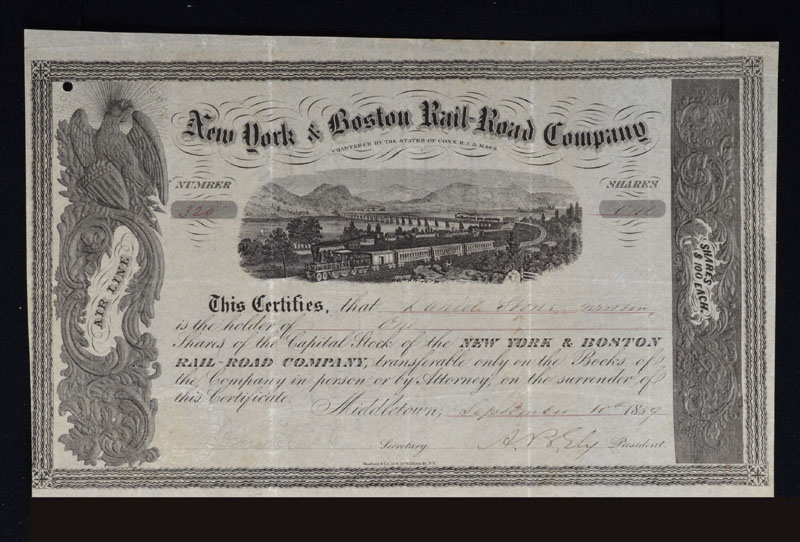 New York & Boston Rail-Road Company
CHARTERED BY THE STATES OF CONN. R.I. & MASS.
NUMBER
320
SHARES
One
AIR LINE
SHARES $100 EACH.
This Certifies, that
is the holder of One
Shares of the Capital Stock of the NEW YORK & BOSTON
RAIL-ROAD COMPANY, transferable only on the Books of
the Company in person or by Attorney, on the surrender of
this Certificate.
Middletown, September 10th 1859
Secretary. President.